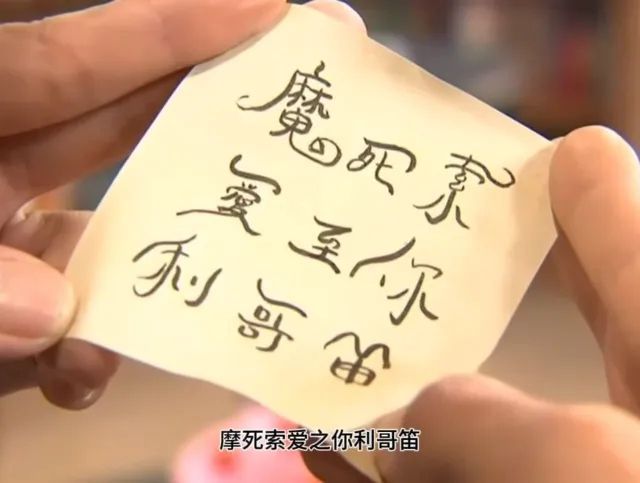 魔死索
愛至你
利哥笛
摩死索爱之你利哥笛